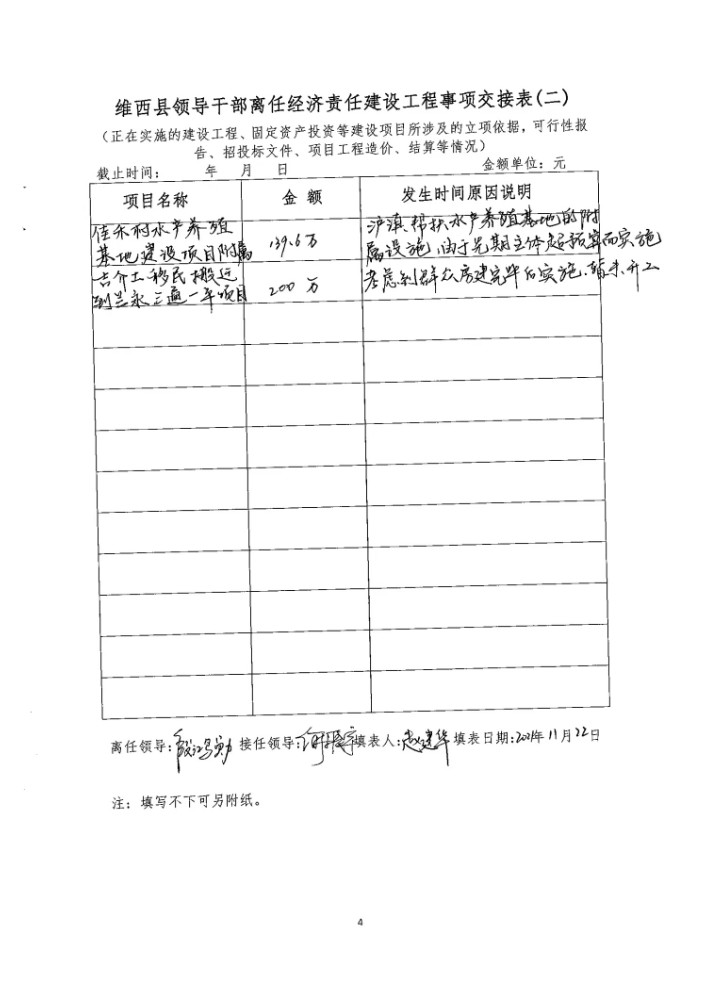 维西县领导干部离任经济责任建设工程事项交接表(二)
(正在实施的建设工程、固定资产投资等建设项目所涉及的立项依据，可行性报
告、招投标文件、项目工程造价、结算等情况)
截止时间： 年 月 日 金额单位：元
项目名称 金 额 发生时间原因说明
佳禾村水产养殖
基地建设项目附属
139.6万
沪滇帮扶水产养殖基地的附
属设施，由于先期主体超预算而实施
移民搬迁
三通一平项目
200万
考虑到群众房建完毕后实施，暂未开工
离任领导： 接任领导： 填表人：赵建华 填表日期：2021年11月22日
注：填写不下可另附纸。
4